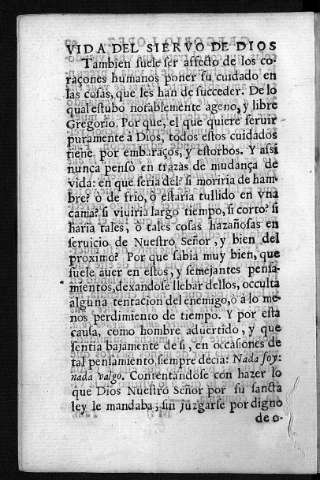 VIDA DEL SIERVO DE DIOS
Tambien suele ser affecto de los co-
raçones humanos poner su cuidado en
las cosas, que les han de succeder. De lo
qual estubo notablemente ageno, y libre
Gregorio. Por que, el que quiere seruir
puramente à Dios, todos estos cuidados
tiene por embaraços, y estorbos. Y assi
nunca pensò en trazas de mudança de
vida: en que seria del? si moriria de ham-
bre? ò de frio, ò estaria tullido en vna
cama? si viuiria largo tiempo, si corto? si
haria tales, ò tales cosas hazañosas en
seruicio de Nuestro Señor, y bien del
proximo? Por que sabia muy bien, que
suele auer en estos, y semejantes pensa-
mientos, dexandose llebar dellos, occulta
alguna tentacion del enemigo, ò à lo me-
nos perdimiento de tiempo. Y por esta
causa, como hombre aduertido, y que
sentia bajamente de si, en occasiones de
tal pensamiento siempre decia: Nada soy:
nada valgo. Contentandose con hazer lo
que Dios Nuestro Señor por su sancta
ley le mandaba, sin juzgarse por digno
de o-